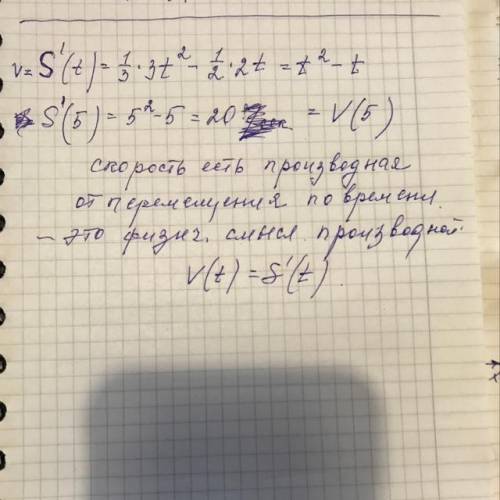 v = S'(t) = 1/3 · 3t² - 1/2 · 2t = t² - t
S'(5) = 5² - 5 = 20 = V(5)
скорость есть производная
от перемещения по времени.
- это физич. смысл производной.
V(t) = S'(t).